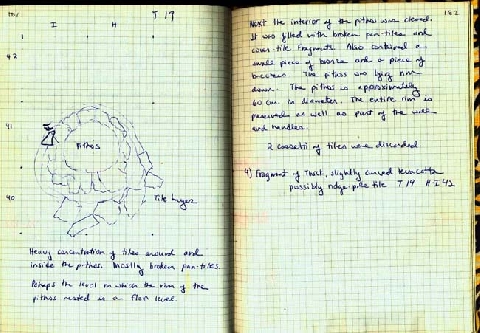 T 19
I H
42
41
Pithos
40
Tile Layer
Heavy concentration of tiles around and
inside the pithos. Mostly broken pan-tiles.
Perhaps the level on which the rim of the
pithos rested is a floor level.
182
Next the interior of the pithos was cleared.
It was filled with broken pan-tiles and
cover-tile fragments. Also contained a
small piece of bronze and a piece of
bucchero. The pithos was lying rim-
down. The pithos is approximately
60 cm. in diameter. The entire rim is
preserved as well as part of the
and handles.
2 cassetti of tiles were discarded
4) Fragment of thick, slightly curved terracotta
possibly ridge-pole tile T 19 H-I 42